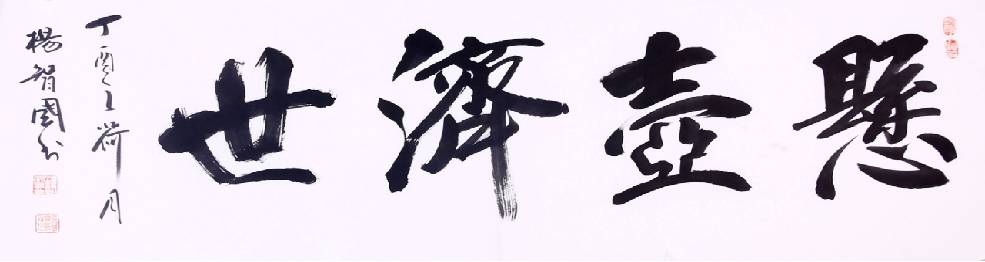 懸壺濟世
丁酉之荷月
楊智國書